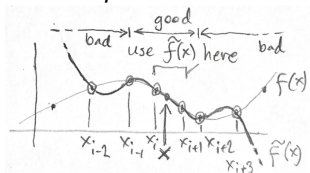 good
bad bad
use f̃(x) here
f(x)
x_{i-2} x_{i-1} x_i x x_{i+1} x_{i+2} x_{i+3}
f̃(x)